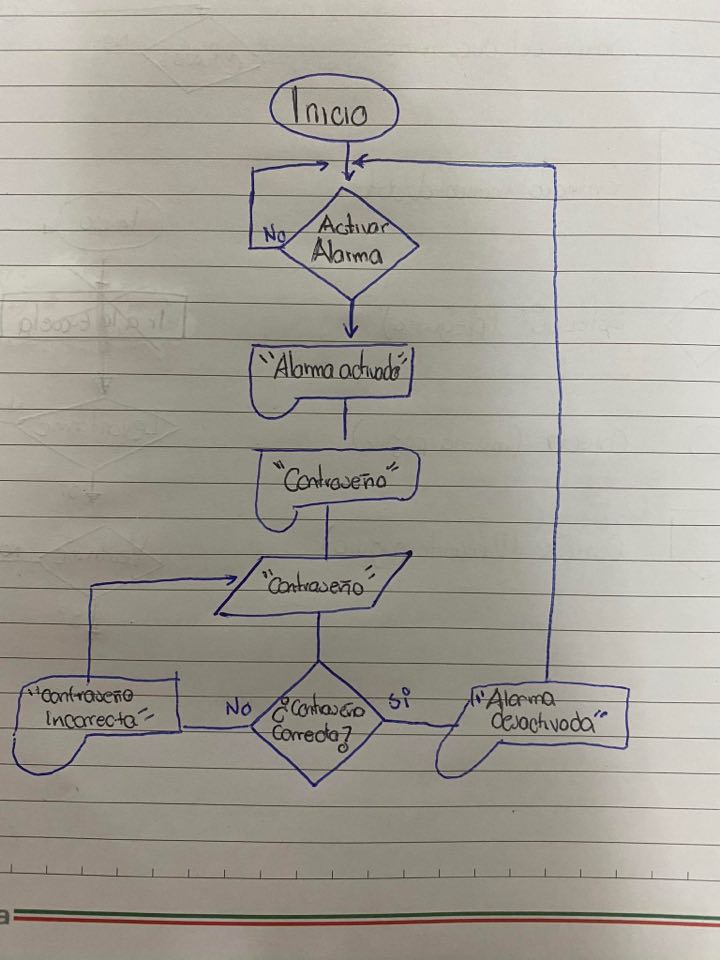 Inicio
No
Activar
Alarma
"Alarma activada"
"Contraseña"
"Contraseña"
"Contraseña
Incorrecta"
No
¿Contraseña
Correcta?
Si
"Alarma
desactivada"